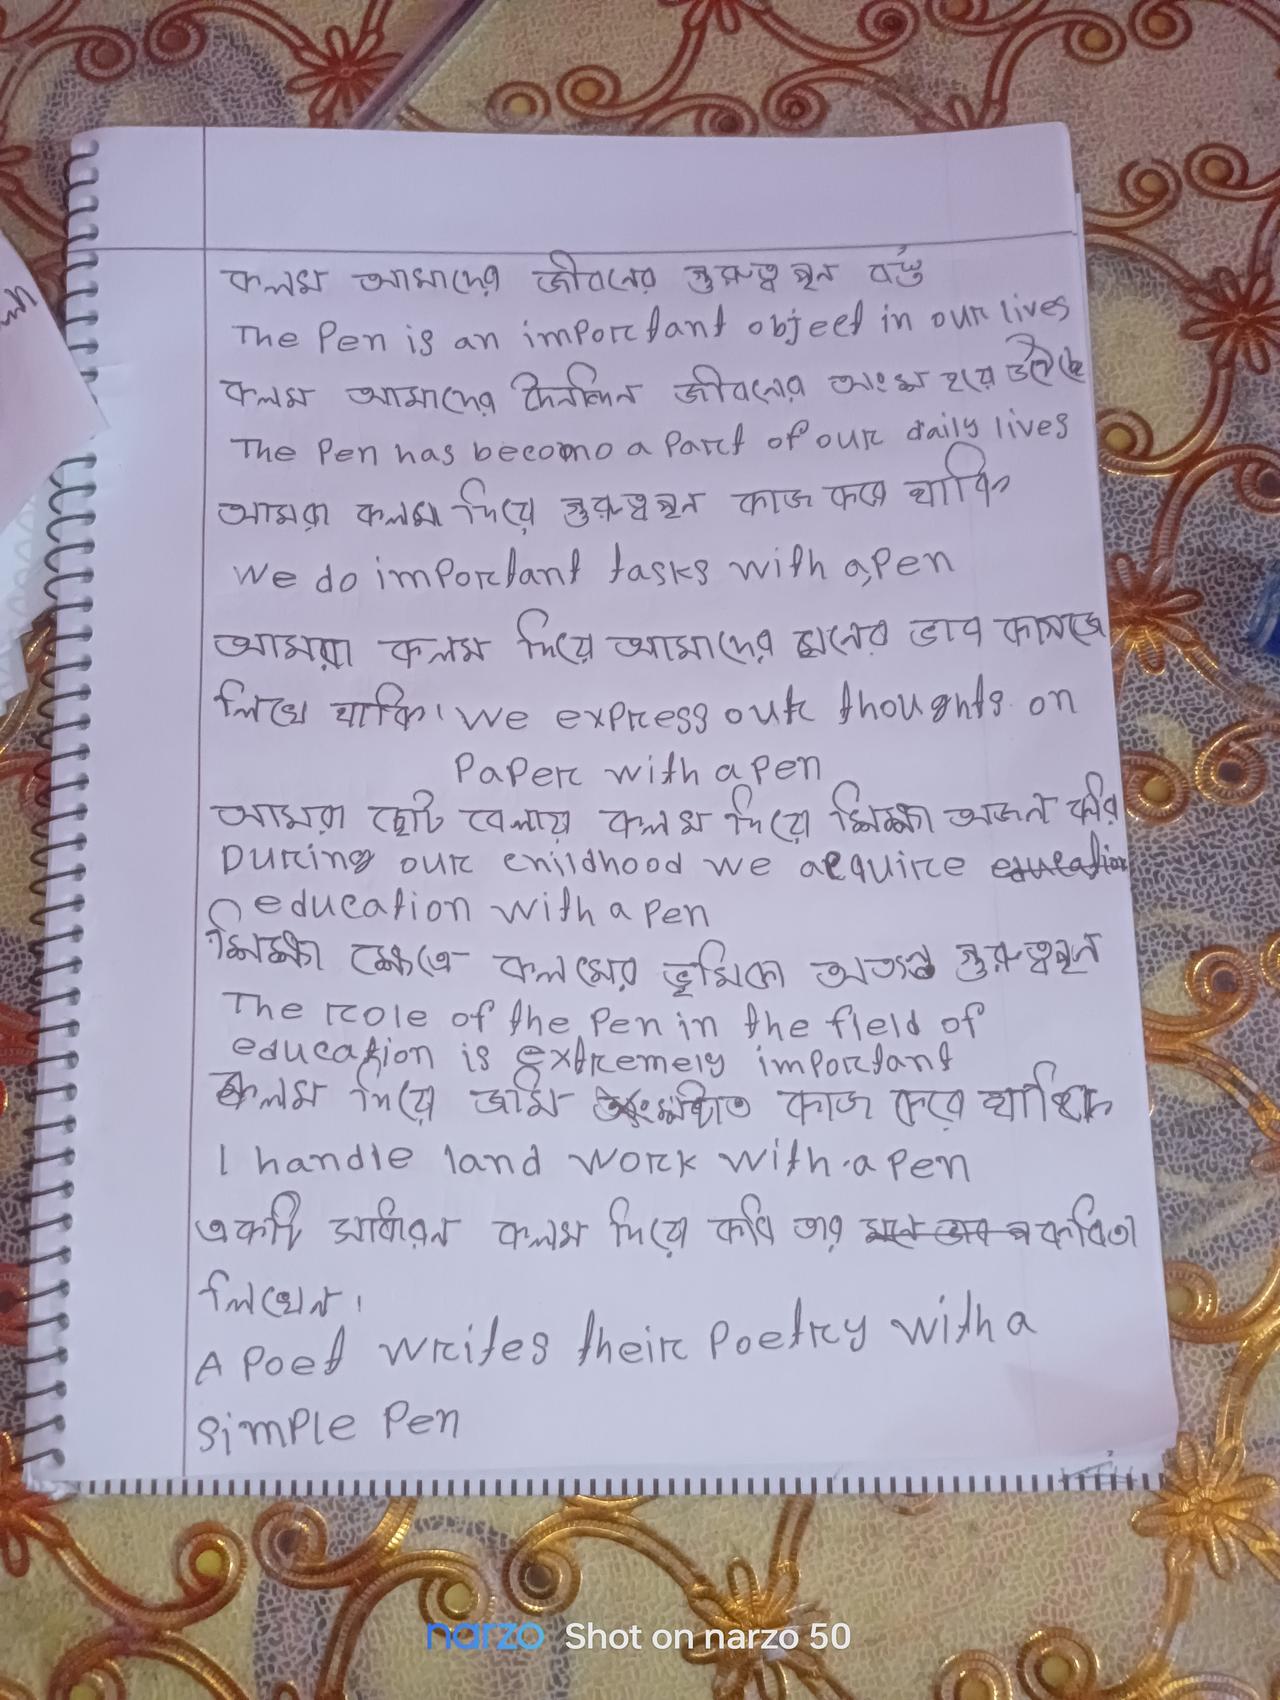 কলম আমাদের জীবনের গুরুত্বপূন বস্তু
The Pen is an important object in our lives
কলম আমাদের দৈনন্দিন জীবনের অংশ হয়ে উঠেছে
The Pen has become a Part of our daily lives
আমরা কলম দিয়ে গুরুত্বপূন কাজ করে থাকি
We do important tasks with a Pen
আমরা কলম দিয়ে আমাদের মনের ভাব কাগজে
লিখে থাকি। We express our thoughts on
Paper with a Pen
আমরা ছোট বেলায় কলম দিয়ে শিক্ষা অজন করি
During our childhood we acquire education
education with a Pen
শিক্ষা ক্ষেত্রে কলমের ভূমিকা অত্যন্ত গুরুত্বপূন
The role of the Pen in the field of
education is extremely important
কলম দিয়ে জমি কাজ করে থাকি
I handle land work with a Pen
একটি সাধারন কলম দিয়ে কবি তার কবিতা
লিখেন।
A Poet writes their Poetry with a
Simple Pen
narzo Shot on narzo 50